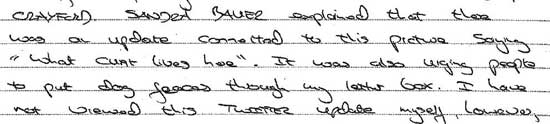 CRAYFORD. SANDRA BAUER explained that there
was an update connected to this picture saying
"what CUNT lives here". It was also urging people
to put dog faeces through my letter box. I have
not viewed this TWITTER update myself, however,